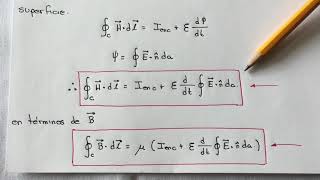 superficie.
∮_C H⃗·dl⃗ = I_enc + ε dΨ/dt
Ψ = ∮ E⃗·n̂ da
∴ ∮_C H⃗·dl⃗ = I_enc + ε d/dt ∮ E⃗·n̂ da
en términos de B⃗
∮_C B⃗·dl⃗ = μ ( I_enc + ε d/dt ∮ E⃗·n̂ da )